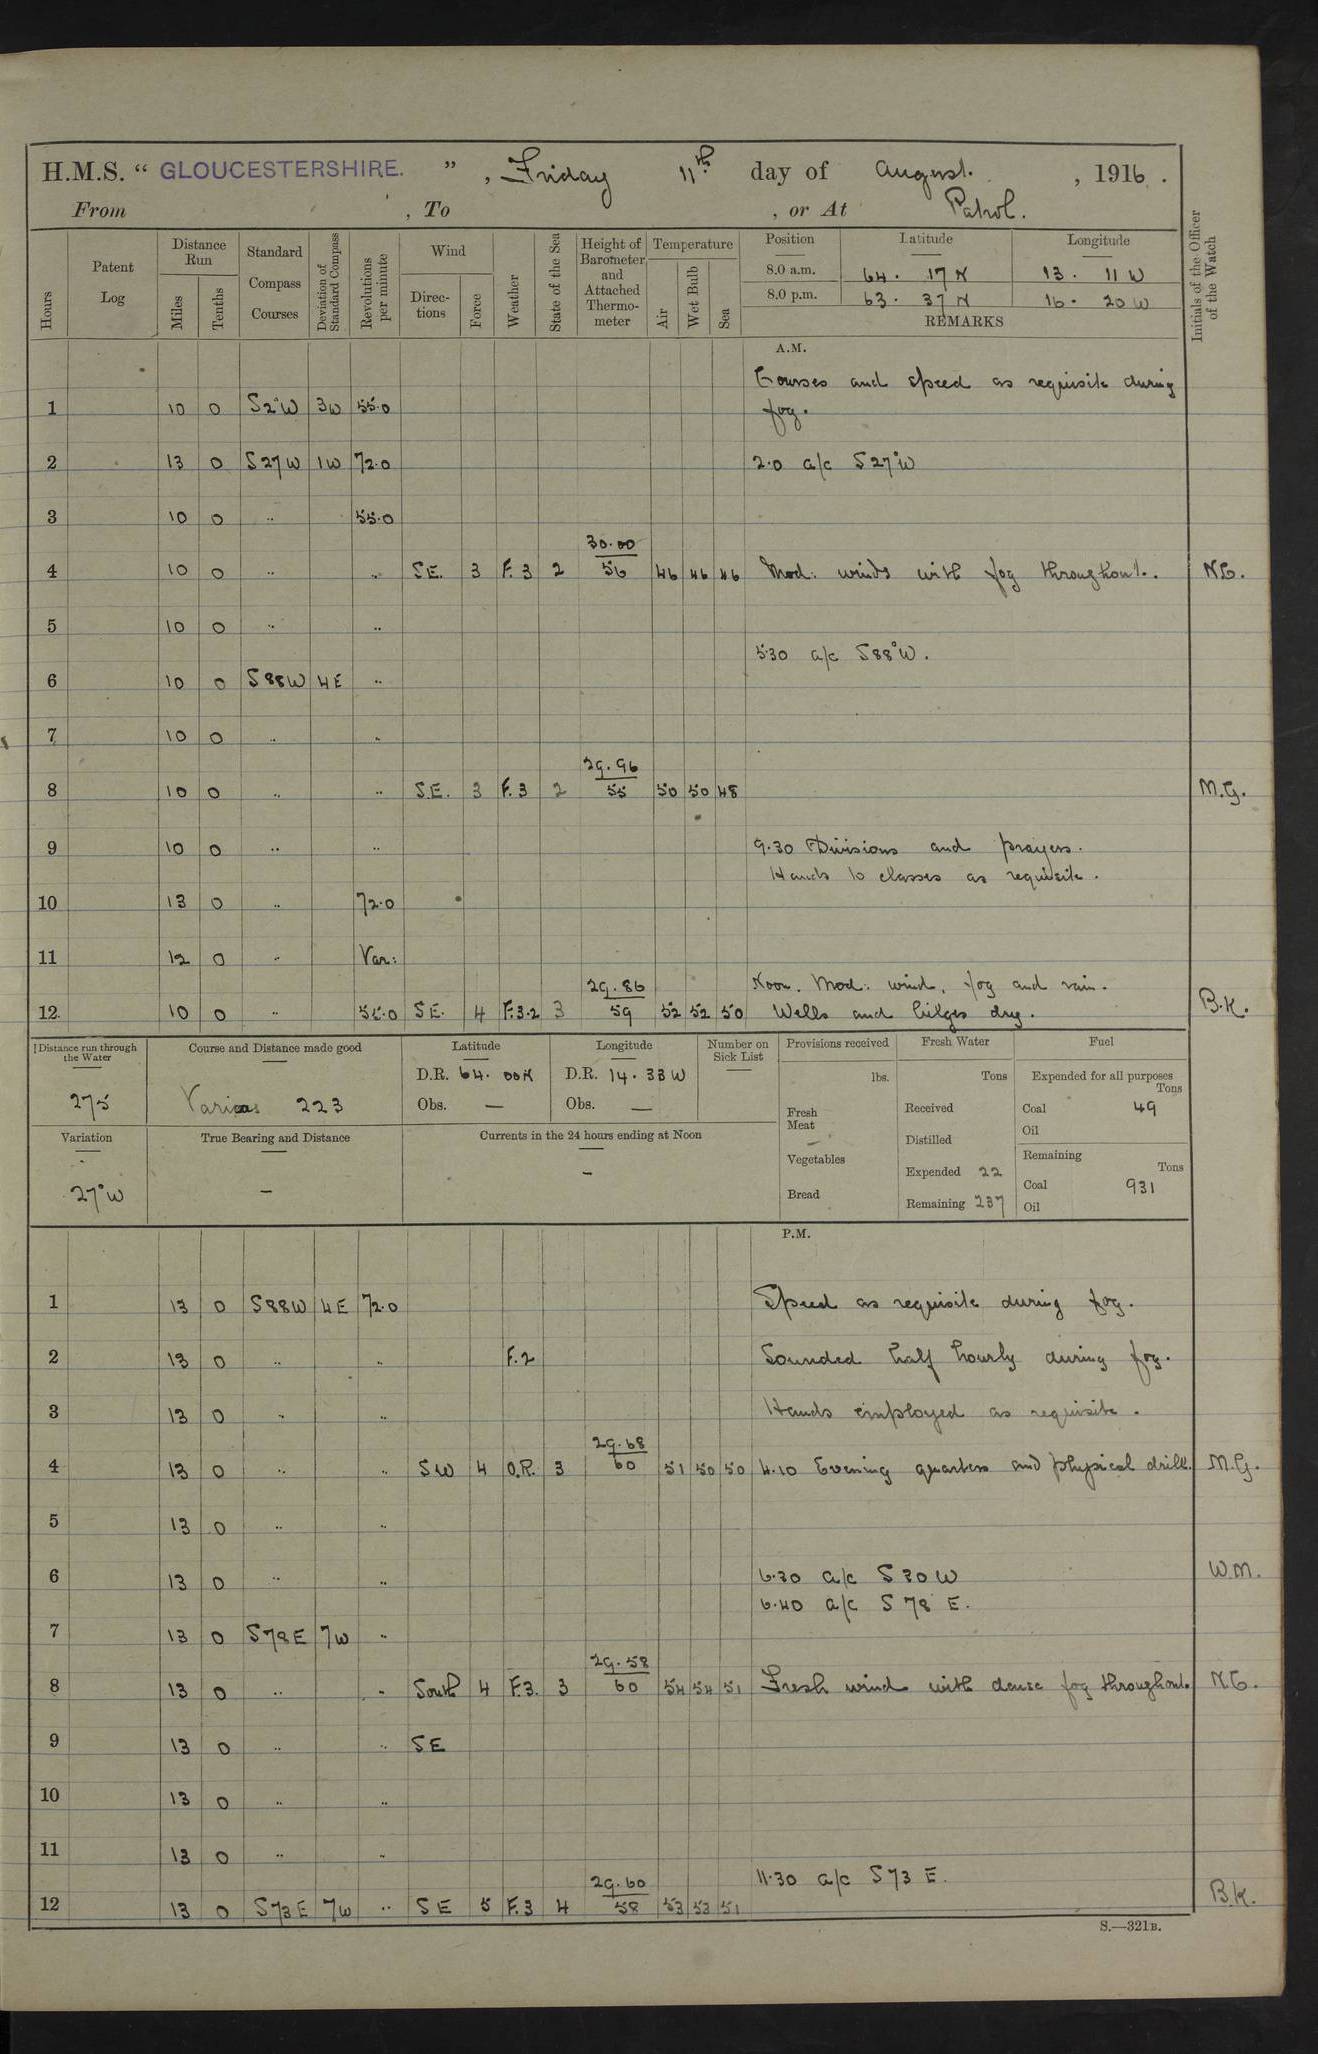 H.M.S. “ GLOUCESTERSHIRE. ” , Friday 11th day of August. , 1916 .
From , To , or At Patrol.
Hours Patent Log Distance Run Miles Tenths Standard Compass Courses Deviation of Standard Compass Revolutions per minute Wind Direc-tions Force Weather State of the Sea Height of Barometer and Attached Thermo-meter Temperature Air Wet Bulb Sea Position Latitude Longitude Initials of the Officer of the Watch
8.0 a.m. 64 . 17 N 13 . 11 W
8.0 p.m. 63 . 37 N 16 . 20 W
REMARKS
A.M.
Courses and speed as requisite during
1 10 0 S2°W 3W 55.0 fog.
2 13 0 S27W 1W 72.0 2.0 a/c S27°W
3 10 0 " 55.0
30.00
4 10 0 " " S.E. 3 F.3 2 56 46 46 46 Mod: winds with fog throughout. N.C.
5 10 0 " "
5.30 a/c S88°W.
6 10 0 S88W 4E "
7 10 0 " "
29.96
8 10 0 " " S.E. 3 F.3 2 55 50 50 48 M.G.
9 10 0 " " 9.30 Divisions and prayers.
Hands to classes as requisite.
10 13 0 " 72.0
11 12 0 " Var:
29.86 Noon. Mod: wind, fog and rain.
12 10 0 " 55.0 SE. 4 F.3.2 3 59 52 52 50 Wells and bilges dry. B.K.
Distance run through the Water Course and Distance made good Latitude Longitude Number on Sick List Provisions received Fresh Water Fuel
275 Various 223 D.R. 64. 00N D.R. 14. 33W lbs. Tons Expended for all purposes Tons
Obs. — Obs. — Fresh Meat Received Coal 49
Oil
Variation True Bearing and Distance Currents in the 24 hours ending at Noon — Distilled Remaining Tons
27°W — — Vegetables Expended 22 Coal 931
Bread Remaining 237 Oil
P.M.
1 13 0 S88W 4E 72.0 Speed as requisite during fog.
2 13 0 " " F.2 Sounded half hourly during fog.
3 13 0 " " Hands employed as requisite.
29.68
4 13 0 " " SW 4 O.R. 3 60 51 50 50 4.10 Evening quarters and physical drill. M.G.
5 13 0 " "
6 13 0 " " 6.30 a/c S30W W.M.
6.40 a/c S78°E.
7 13 0 S78E 7W "
29.58
8 13 0 " " South 4 F.3. 3 60 54 54 51 Fresh wind with dense fog throughout. N.C.
9 13 0 " " SE
10 13 0 " "
11 13 0 " "
29.60 11.30 a/c S73 E.
12 13 0 S73E 7W " SE 5 F.3 4 58 53 53 51 B.K.
S.—321B.